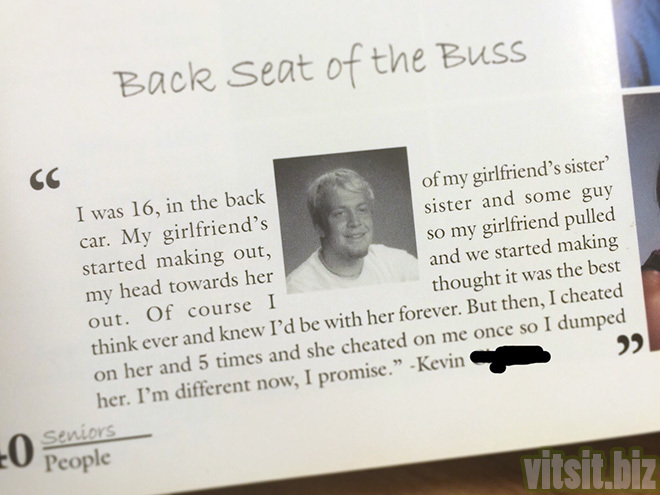 Back Seat of the Buss
“
I was 16, in the back of my girlfriend's sister'
car. My girlfriend's sister and some guy
started making out, so my girlfriend pulled
my head towards her and we started making
out. Of course I thought it was the best
think ever and knew I'd be with her forever. But then, I cheated
on her and 5 times and she cheated on me once so I dumped
her. I'm different now, I promise.” -Kevin
”
40 Seniors
People
vitsit.biz